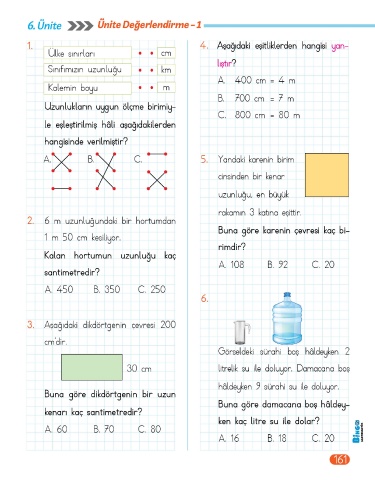 6. Ünite
Ünite Değerlendirme - 1
1.
Ülke sınırları • • cm
Sınıfımızın uzunluğu • • km
Kalemin boyu • • m
Uzunlukların uygun ölçme birimiy-
le eşleştirilmiş hâli aşağıdakilerden
hangisinde verilmiştir?
A. B. C.
2. 6 m uzunluğundaki bir hortumdan
1 m 50 cm kesiliyor.
Kalan hortumun uzunluğu kaç
santimetredir?
A. 450 B. 350 C. 250
3. Aşağıdaki dikdörtgenin çevresi 200
cm'dir.
30 cm
Buna göre dikdörtgenin bir uzun
kenarı kaç santimetredir?
A. 60 B. 70 C. 80
4. Aşağıdaki eşitliklerden hangisi yan-
lıştır?
A. 400 cm = 4 m
B. 700 cm = 7 m
C. 800 cm = 80 m
5. Yandaki karenin birim
cinsinden bir kenar
uzunluğu, en büyük
rakamın 3 katına eşittir.
Buna göre karenin çevresi kaç bi-
rimdir?
A. 108 B. 92 C. 20
6.
Görseldeki sürahi boş hâldeyken 2
litrelik su ile doluyor. Damacana boş
hâldeyken 9 sürahi su ile doluyor.
Buna göre damacana boş hâldey-
ken kaç litre su ile dolar?
A. 16 B. 18 C. 20
161